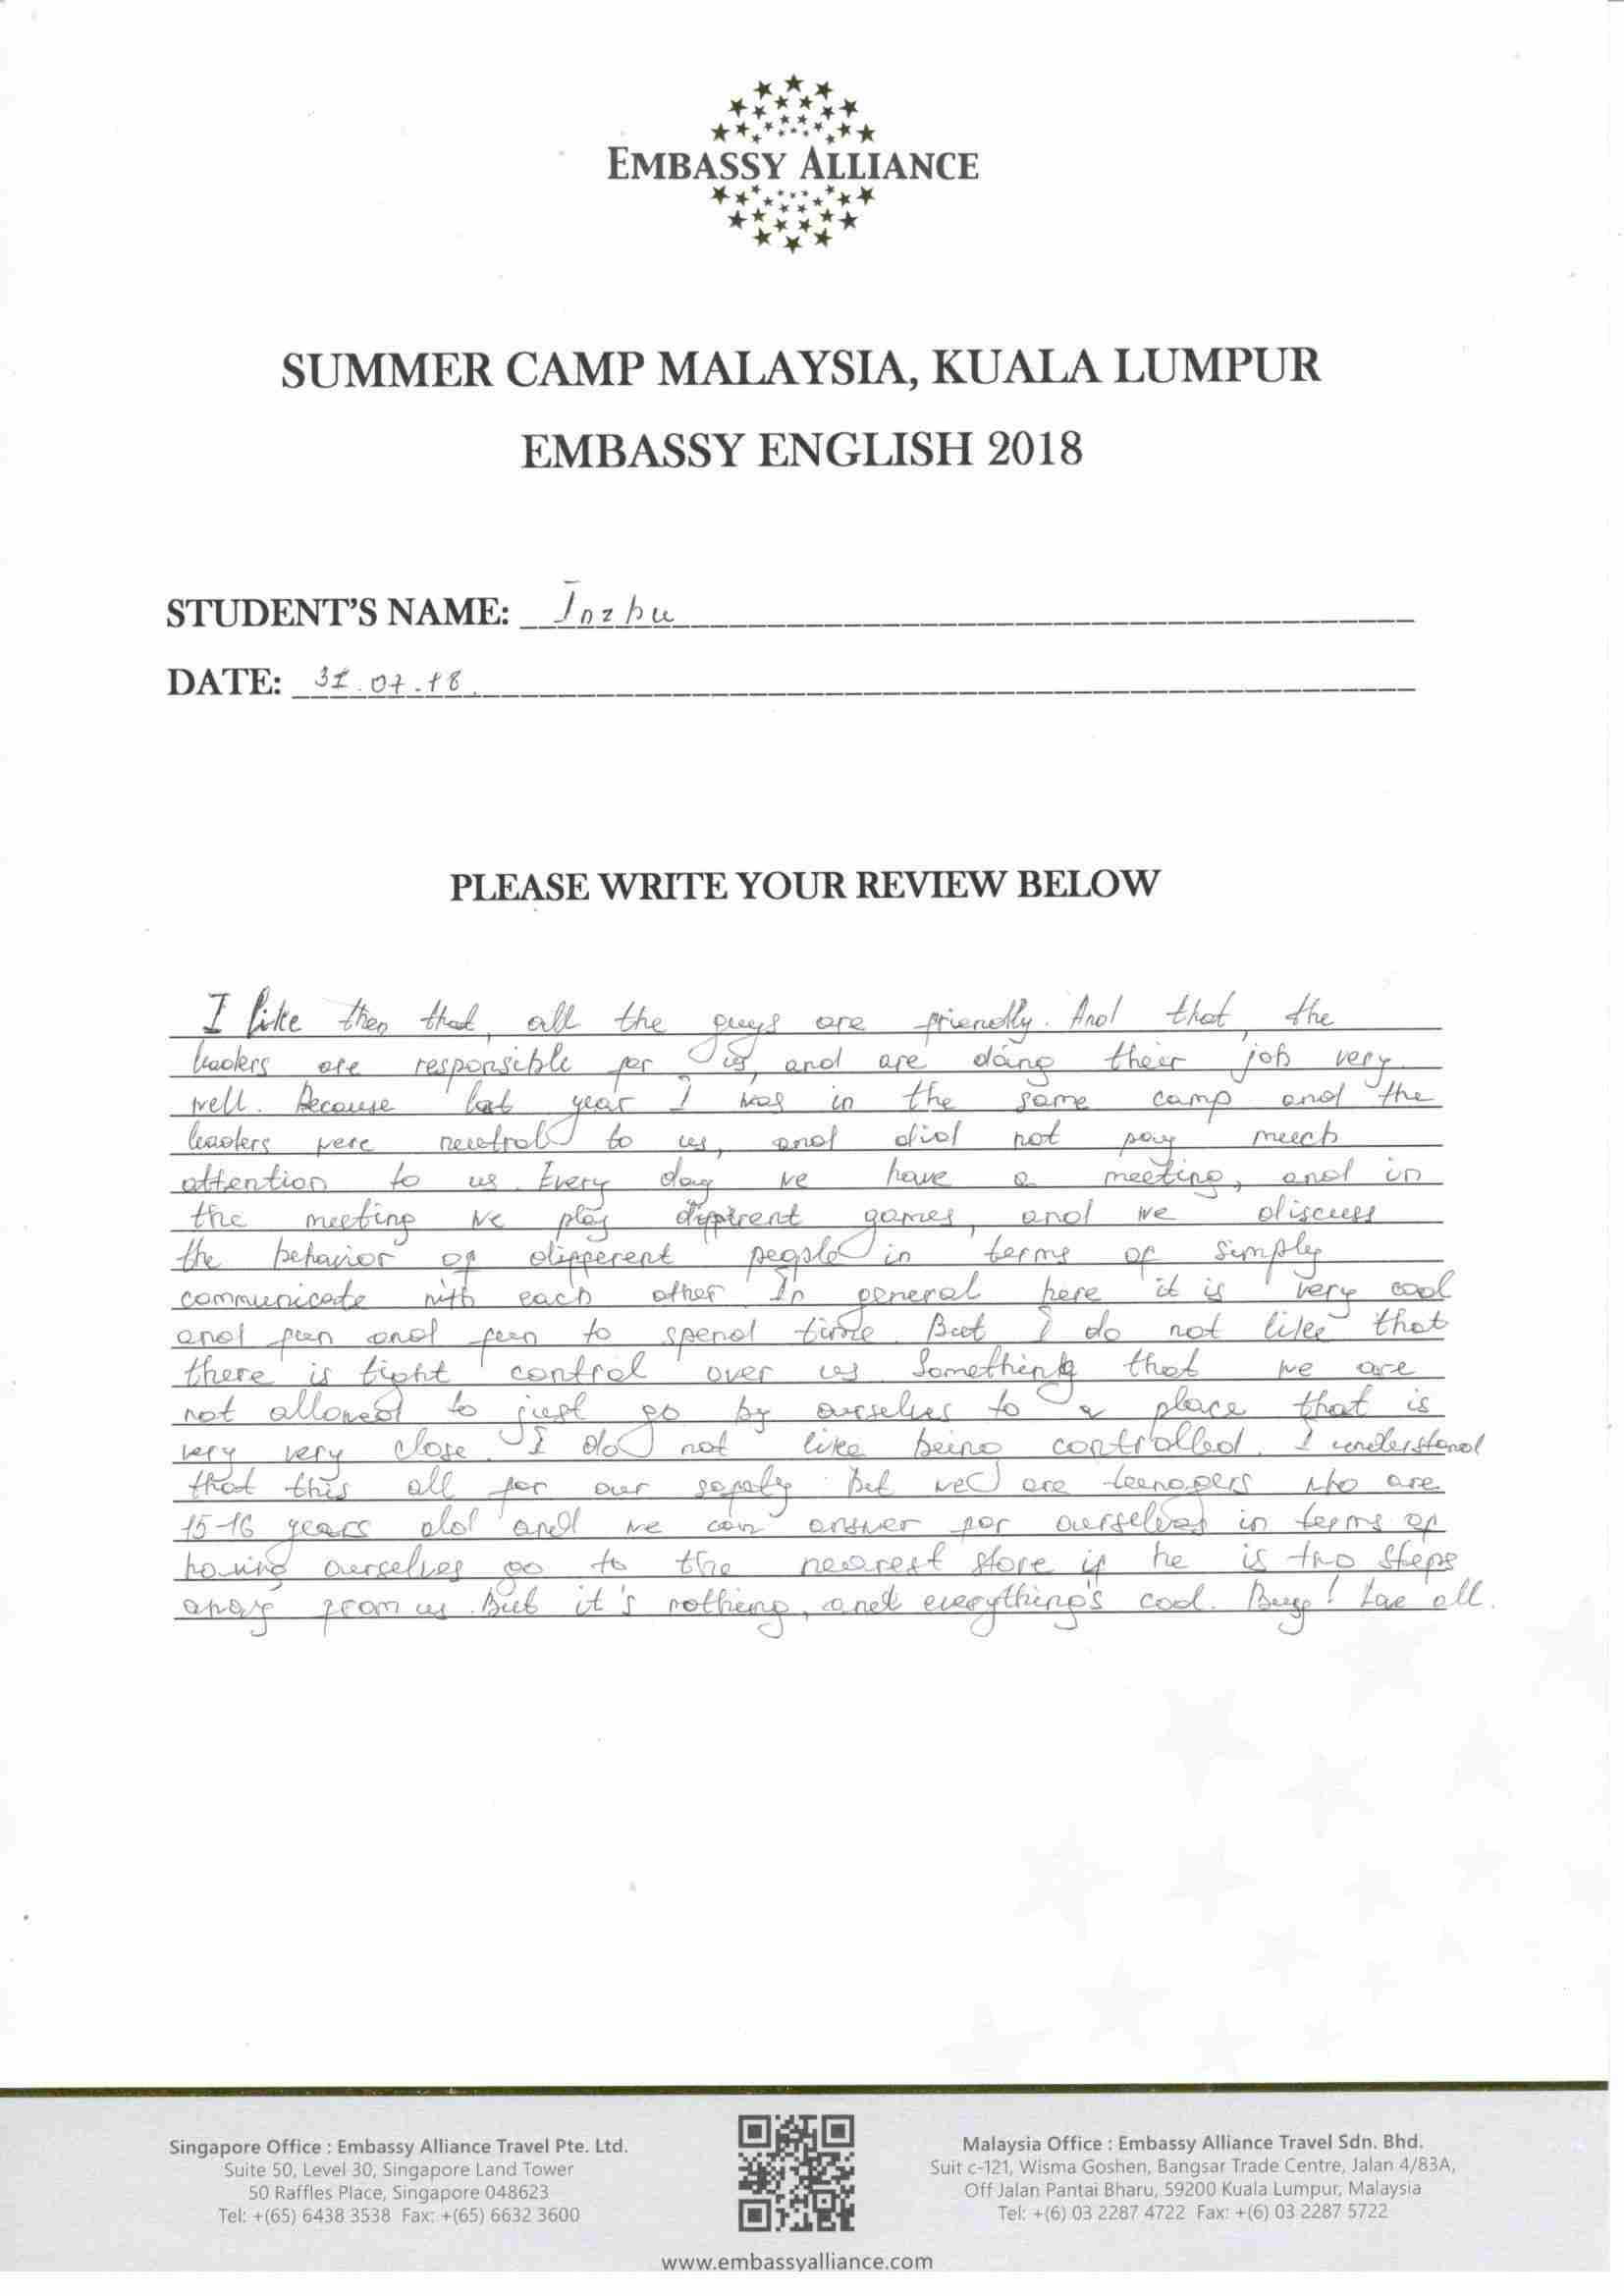 EMBASSY ALLIANCE
SUMMER CAMP MALAYSIA, KUALA LUMPUR
EMBASSY ENGLISH 2018
STUDENT'S NAME: Inzhu
DATE: 31.07.18.
PLEASE WRITE YOUR REVIEW BELOW
I like then that, all the guys are friendly. And that, the
leaders are responsible for us, and are doing their job very
well. Because last year I was in the same camp and the
leaders were neutral to us, and did not pay much
attention to us. Every day we have a meeting, and in
the meeting we play different games, and we discuss
the behavior of different people in terms of simply
communicate with each other. In general here it is very cool
and fun and fun to spend time. But I do not like that
there is tight control over us. Something that we are
not allowed to just go by ourselves to a place that is
very very close. I do not like being controlled. I understand
that this all for our safaty. But we are teenagers who are
15-16 years old and we can answer for ourselves in terms of
having ourselves go to the nearest store if he is two steps
away from us. But it's nothing, and everything's cool. Buy! Love all.
Singapore Office : Embassy Alliance Travel Pte. Ltd.
Suite 50, Level 30, Singapore Land Tower
50 Raffles Place, Singapore 048623
Tel: +(65) 6438 3538 Fax: +(65) 6632 3600
Malaysia Office : Embassy Alliance Travel Sdn. Bhd.
Suit c-121, Wisma Goshen, Bangsar Trade Centre, Jalan 4/83A,
Off Jalan Pantai Bharu, 59200 Kuala Lumpur, Malaysia
Tel: +(6) 03 2287 4722 Fax: +(6) 03 2287 5722
www.embassyalliance.com